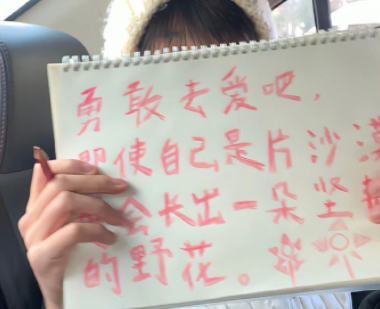 勇敢去爱吧,
即使自己是片沙漠
会长出一朵坚
的野花。